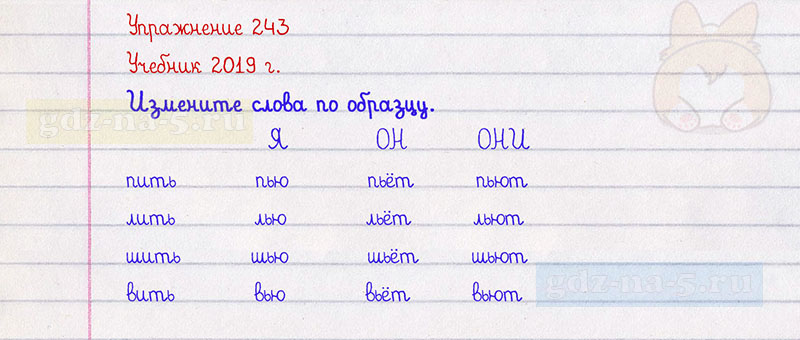 Упражнение 243
Учебник 2019 г.
Измените слова по образцу.
gdz-na-5.ru
Я ОН ОНИ
пить пью пьёт пьют
лить лью льёт льют
шить шью шьёт шьют
gdz-na-5.ru
вить вью вьёт вьют